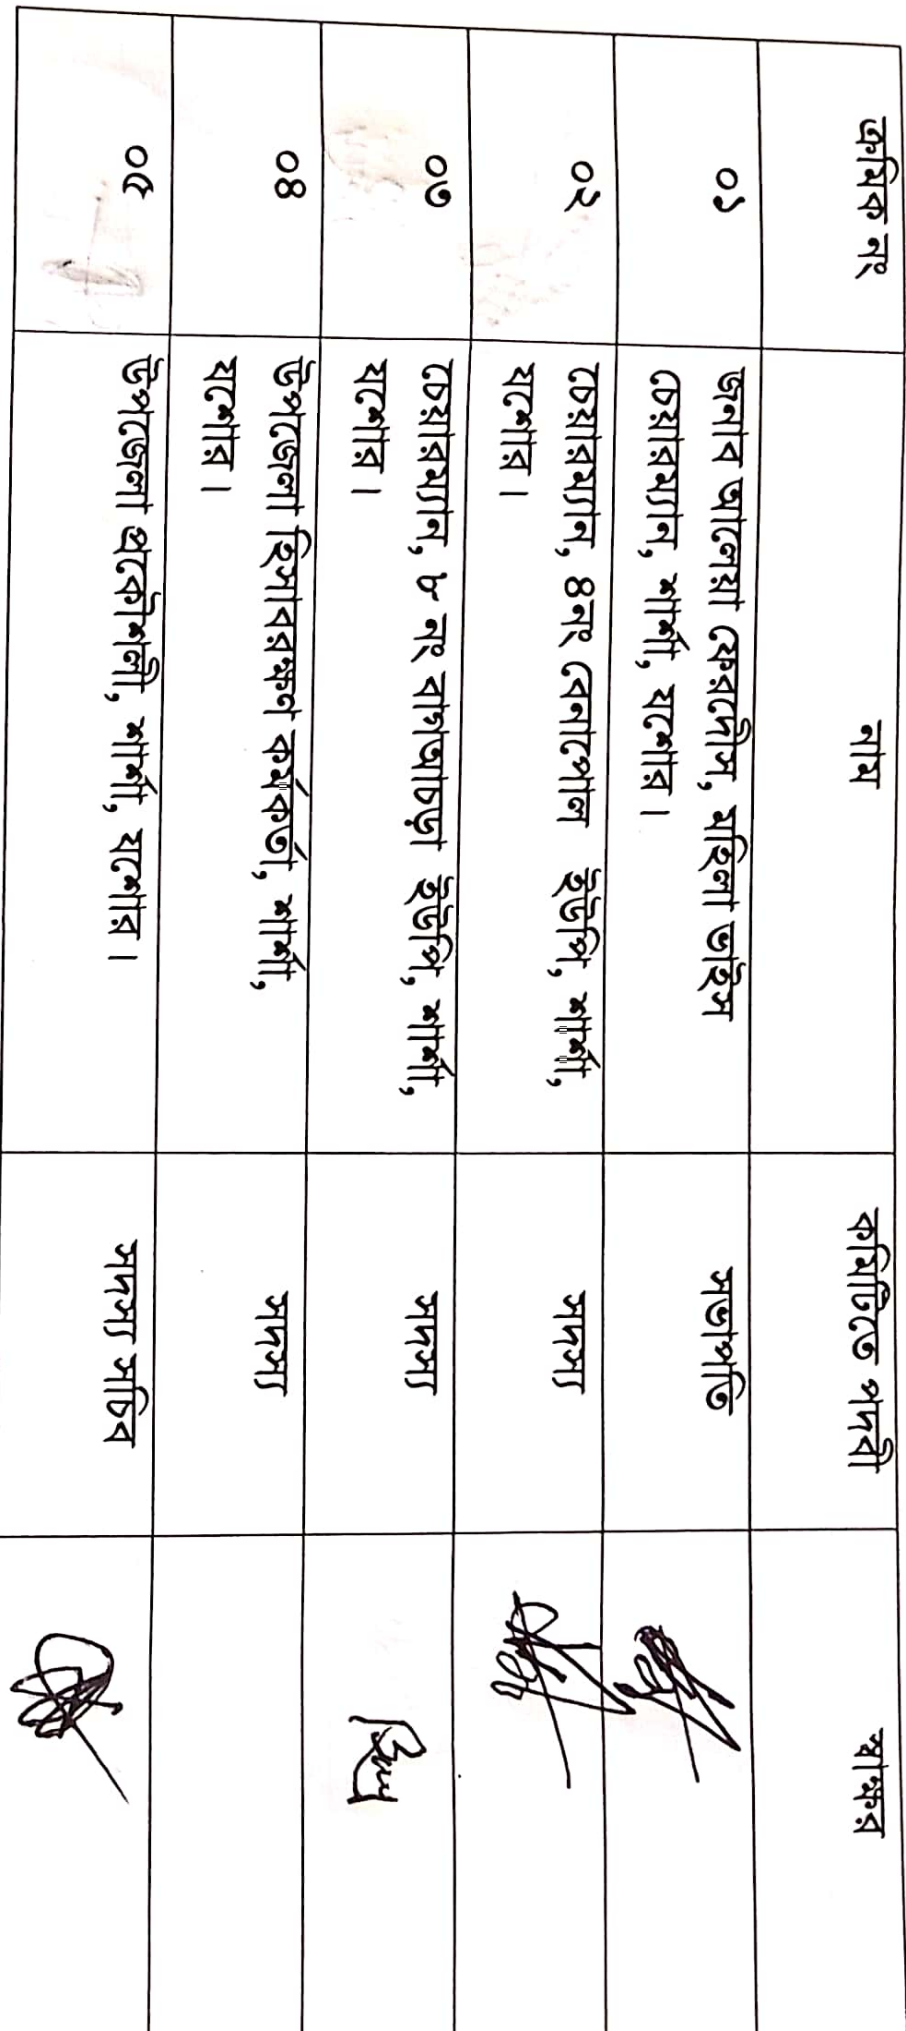 ক্রমিক নং নাম কমিটিতে পদবী স্বাক্ষর
০১ জনাব আলেয়া ফেরদৌস, মহিলা ভাইস সভাপতি
চেয়ারম্যান, শার্শা, যশোর।
০২ চেয়ারম্যান, ৪নং বেনাপোল ইউপি, শার্শা, সদস্য
যশোর।
০৩ চেয়ারম্যান, ৮ নং বাগআচড়া ইউপি, শার্শা, সদস্য
যশোর।
০৪ উপজেলা হিসাবরক্ষন কর্মকর্তা, শার্শা, সদস্য
যশোর।
০৫ উপজেলা প্রকৌশলী, শার্শা, যশোর। সদস্য সচিব